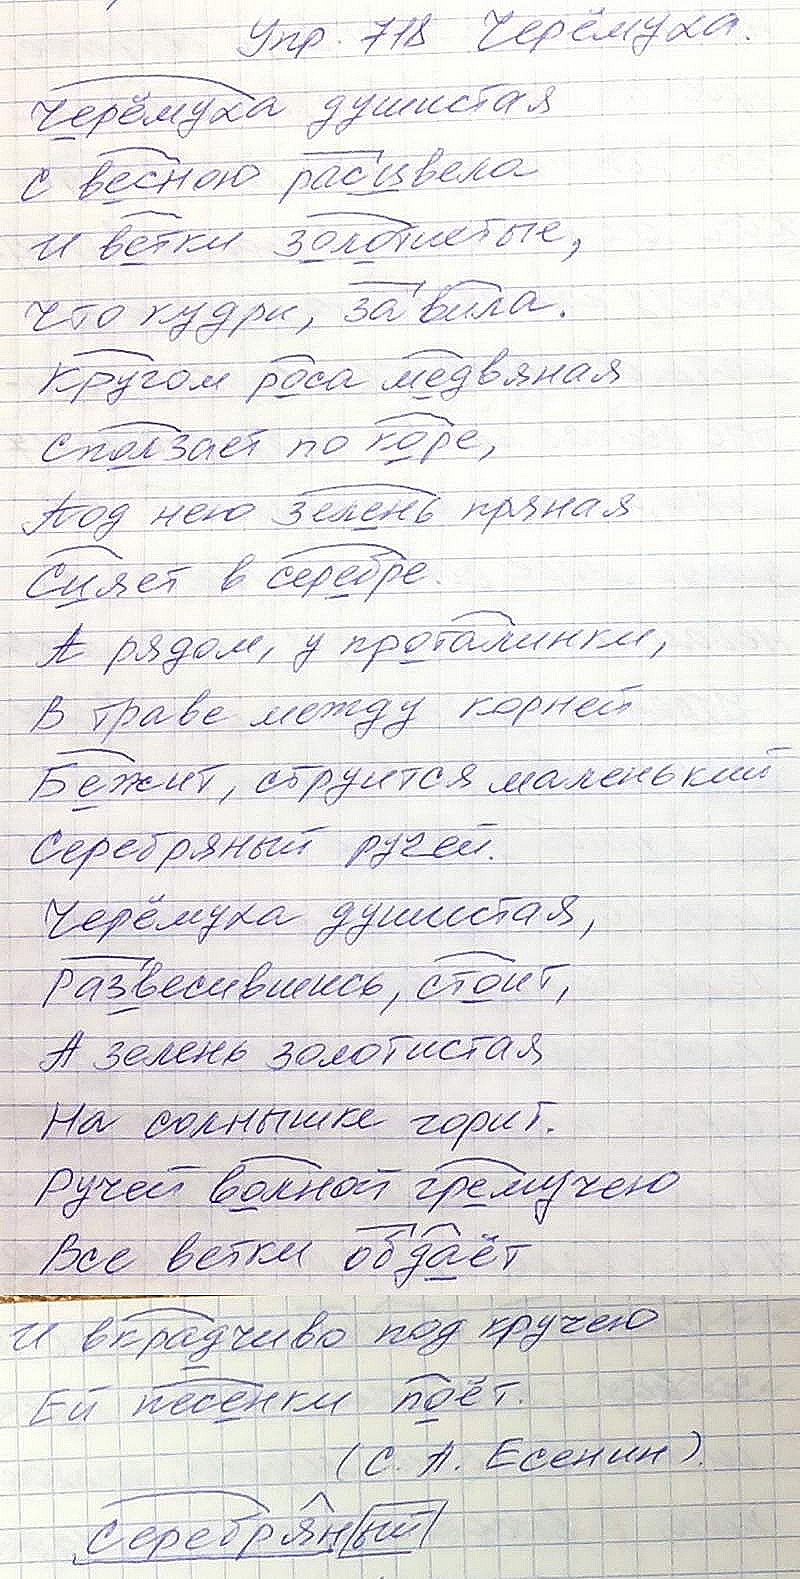 Упр. 718 Черёмуха.
Черёмуха душистая
с весною расцвела
И ветки золотистые,
что кудри, завила.
Кругом роса медвяная
Сползает по коре,
Под нею зелень пряная
Сияет в серебре.
А рядом, у проталинки,
В траве между корней
Бежит, струится маленький
Серебряный ручей.
Черёмуха душистая,
Развесившись, стоит,
А зелень золотистая
На солнышке горит.
Ручей волной гремучею
Все ветки обдаёт
И вкрадчиво под кручею
Ей песенки поёт.
(С. А. Есенин).
Серебряный